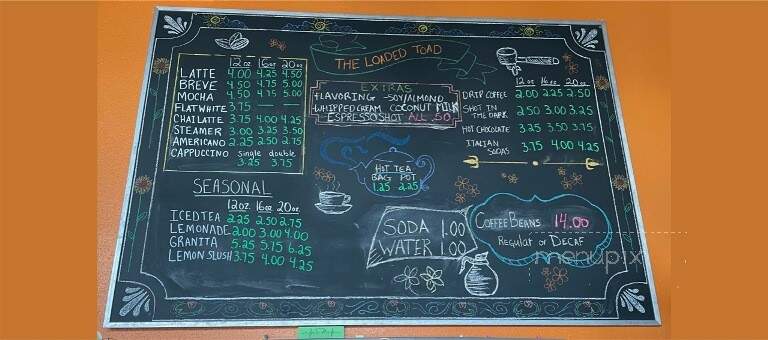 THE LOADED TOAD
12 oz 16 oz 20 oz
LATTE 4.00 4.25 4.50
BREVE 4.50 4.75 5.00
MOCHA 4.50 4.75 5.00
FLAT WHITE 3.75 — —
CHAI LATTE 3.75 4.00 4.25
STEAMER 3.00 3.25 3.50
AMERICANO 2.25 2.50 2.75
CAPPUCCINO single double
3.25 3.75
SEASONAL
12oz. 16oz 20oz.
ICED TEA 2.25 2.50 2.75
LEMONADE 2.00 3.00 4.00
GRANITA 5.25 5.75 6.25
LEMON SLUSH 3.75 4.00 4.25
EXTRAS
FLAVORING -SOY/ALMOND
WHIPPED CREAM COCONUT MILK
ESPRESSO SHOT ALL .50
HOT TEA
BAG POT
1.25 2.25
SODA 1.00
WATER 1.00
12 oz 16 oz. 20 oz.
DRIP COFFEE 2.00 2.25 2.50
SHOT IN THE DARK 2.50 3.00 3.25
HOT CHOCOLATE 3.25 3.50 3.75
ITALIAN SODAS 3.75 4.00 4.25
COFFEE BEANS 14.00
Regular or DECAF
menupix